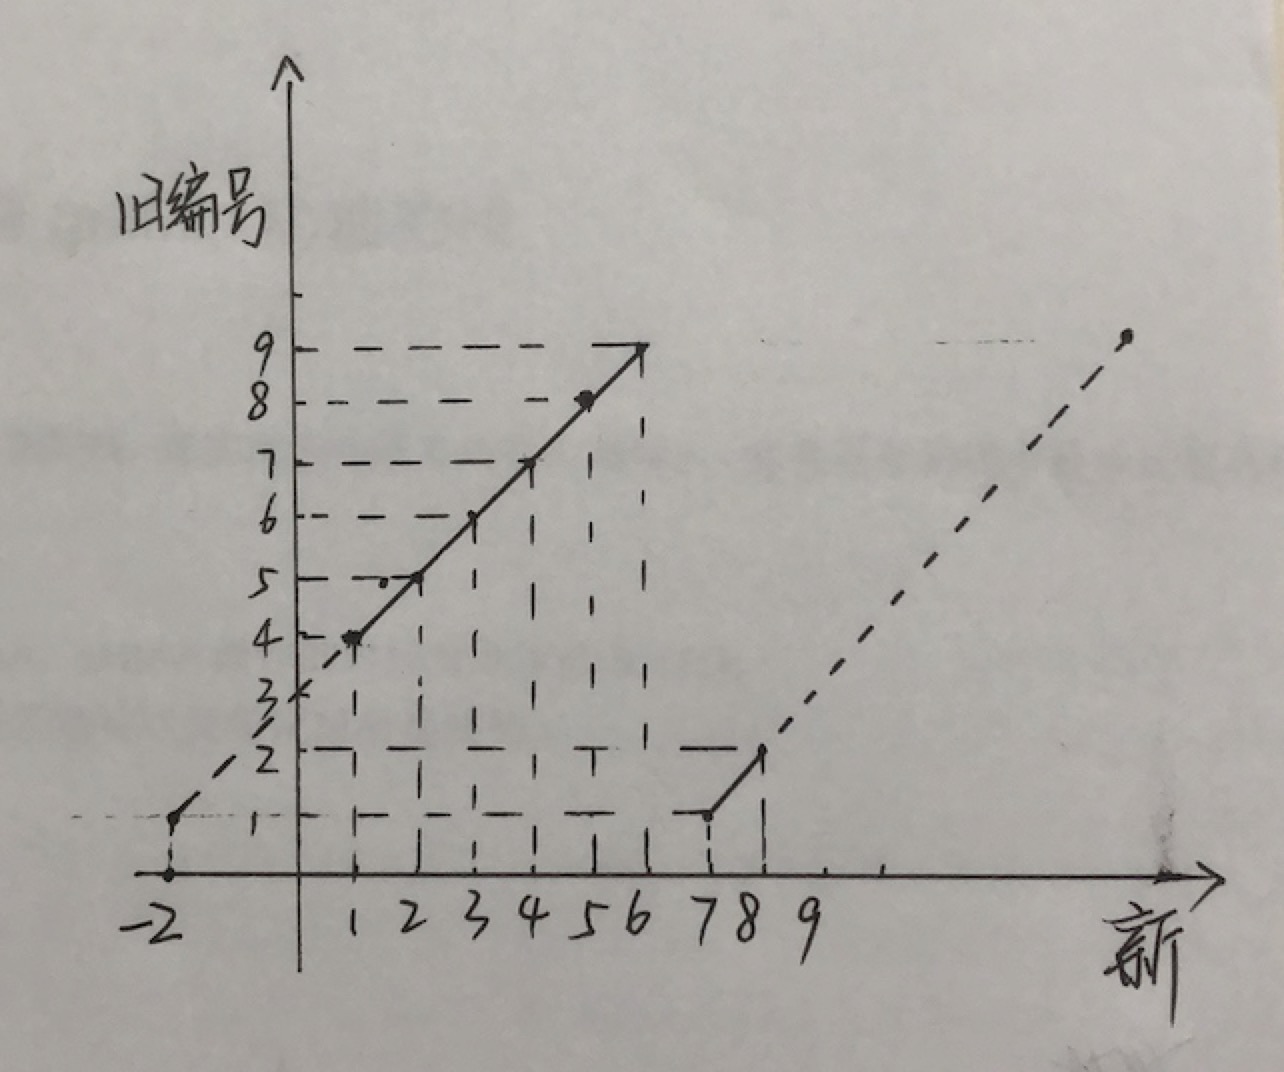 旧编号
9
8
7
6
5
4
3
2
1
-2 1 2 3 4 5 6 7 8 9
新